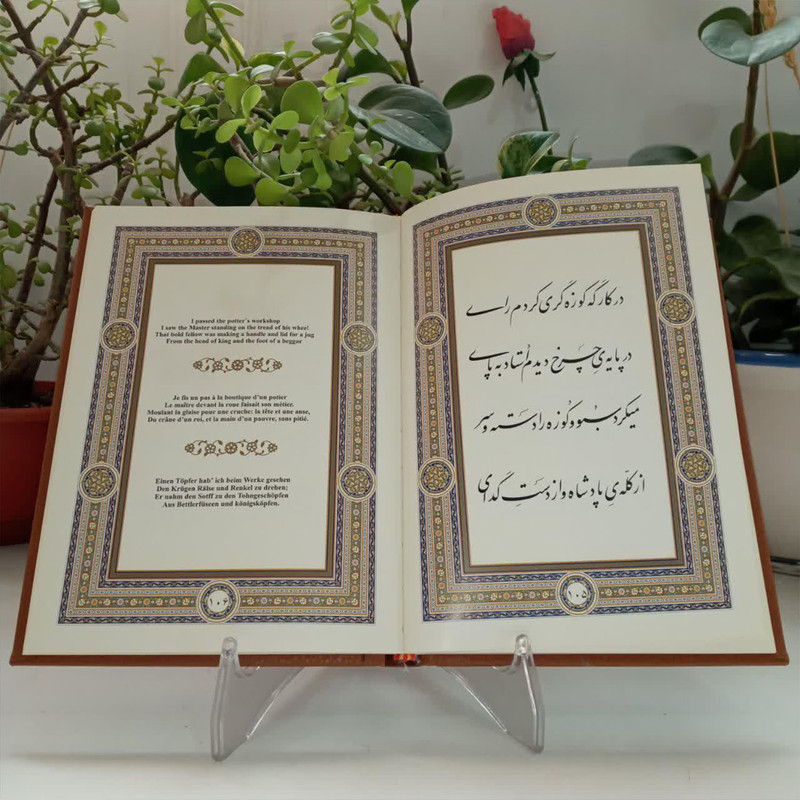 در کارگه کوزه گری کردم رای
در پایه یِ چرخ دیدم اُستاد به پای
میکرد سبو و کوزه را دسته و سر
از کلّه یِ پادشاه و از دستِ گدای
۱۰۵
I passed the potter's workshop
I saw the Master standing on the tread of his whee!
That bold fellow was making a handle and lid for a jug
From the head of king and the foot of a beggar
Je fis un pas à la boutique d'un potier
Le maître devant la roue faisait son métier.
Moulant la glaise pour une cruche: la tête et une anse,
Du crâne d'un roi, et la main d'un pauvre, sans pitié.
Einen Töpfer hab' ich beim Werke gesehen
Den Krügen Rälse und Renkel zu drehen;
Er nahm den Sotff zu den Tohngeschöpfen
Aus Bettlerfüseen und königsköpfen.
۱۰۶